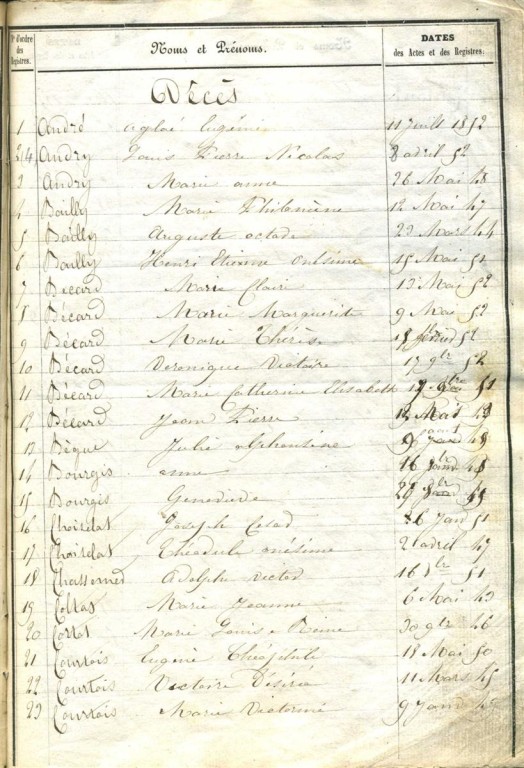 Nº d'ordre des Registres. Noms et Prénoms. DATES des Actes et des Registres.
Décès
1 André aglaé Eugénie 11 Juill 1852
2/4 Andry Louis Pierre Nicolas 8 avril 52
3 Andry Marie anne 26 Mai 48
4 Bailly Marie Philomène 12 Mai 47
5 Bailly Auguste octade 23 Mars 44
6 Bailly Henri Etienne 15 Mai 51
7 Bécard Marie Claire 13 Mai 52
8 Bécard Marie Marguerite 9 Mai 52
9 Bécard Marie Thérèse 52
10 Bécard Veronique Victoire 17 9bre 52
11 Bécard Marie Catherine Elisabeth 17 9bre 51
12 Bécard Jean Pierre 12 Mai 49
13 Bègue Julie alphonsine 9 aout 48
14 Bourgis anne 16 48
15 Bourgis Geneviève 27
16 Choiselat Joseph 26 Janv 51
17 Choiselat Théodule onésime 21 avril 47
18 Adolphe victor 16 51
19 Collas Marie Jeanne 6 Mai 43
20 Marie Louise Reine 30 9bre 46
21 Courtois Eugénie Théophile 18 Mai 50
22 Courtois Victoire Désirée 11 Mars 45
23 Courtois Marie Victorine 9 Janv